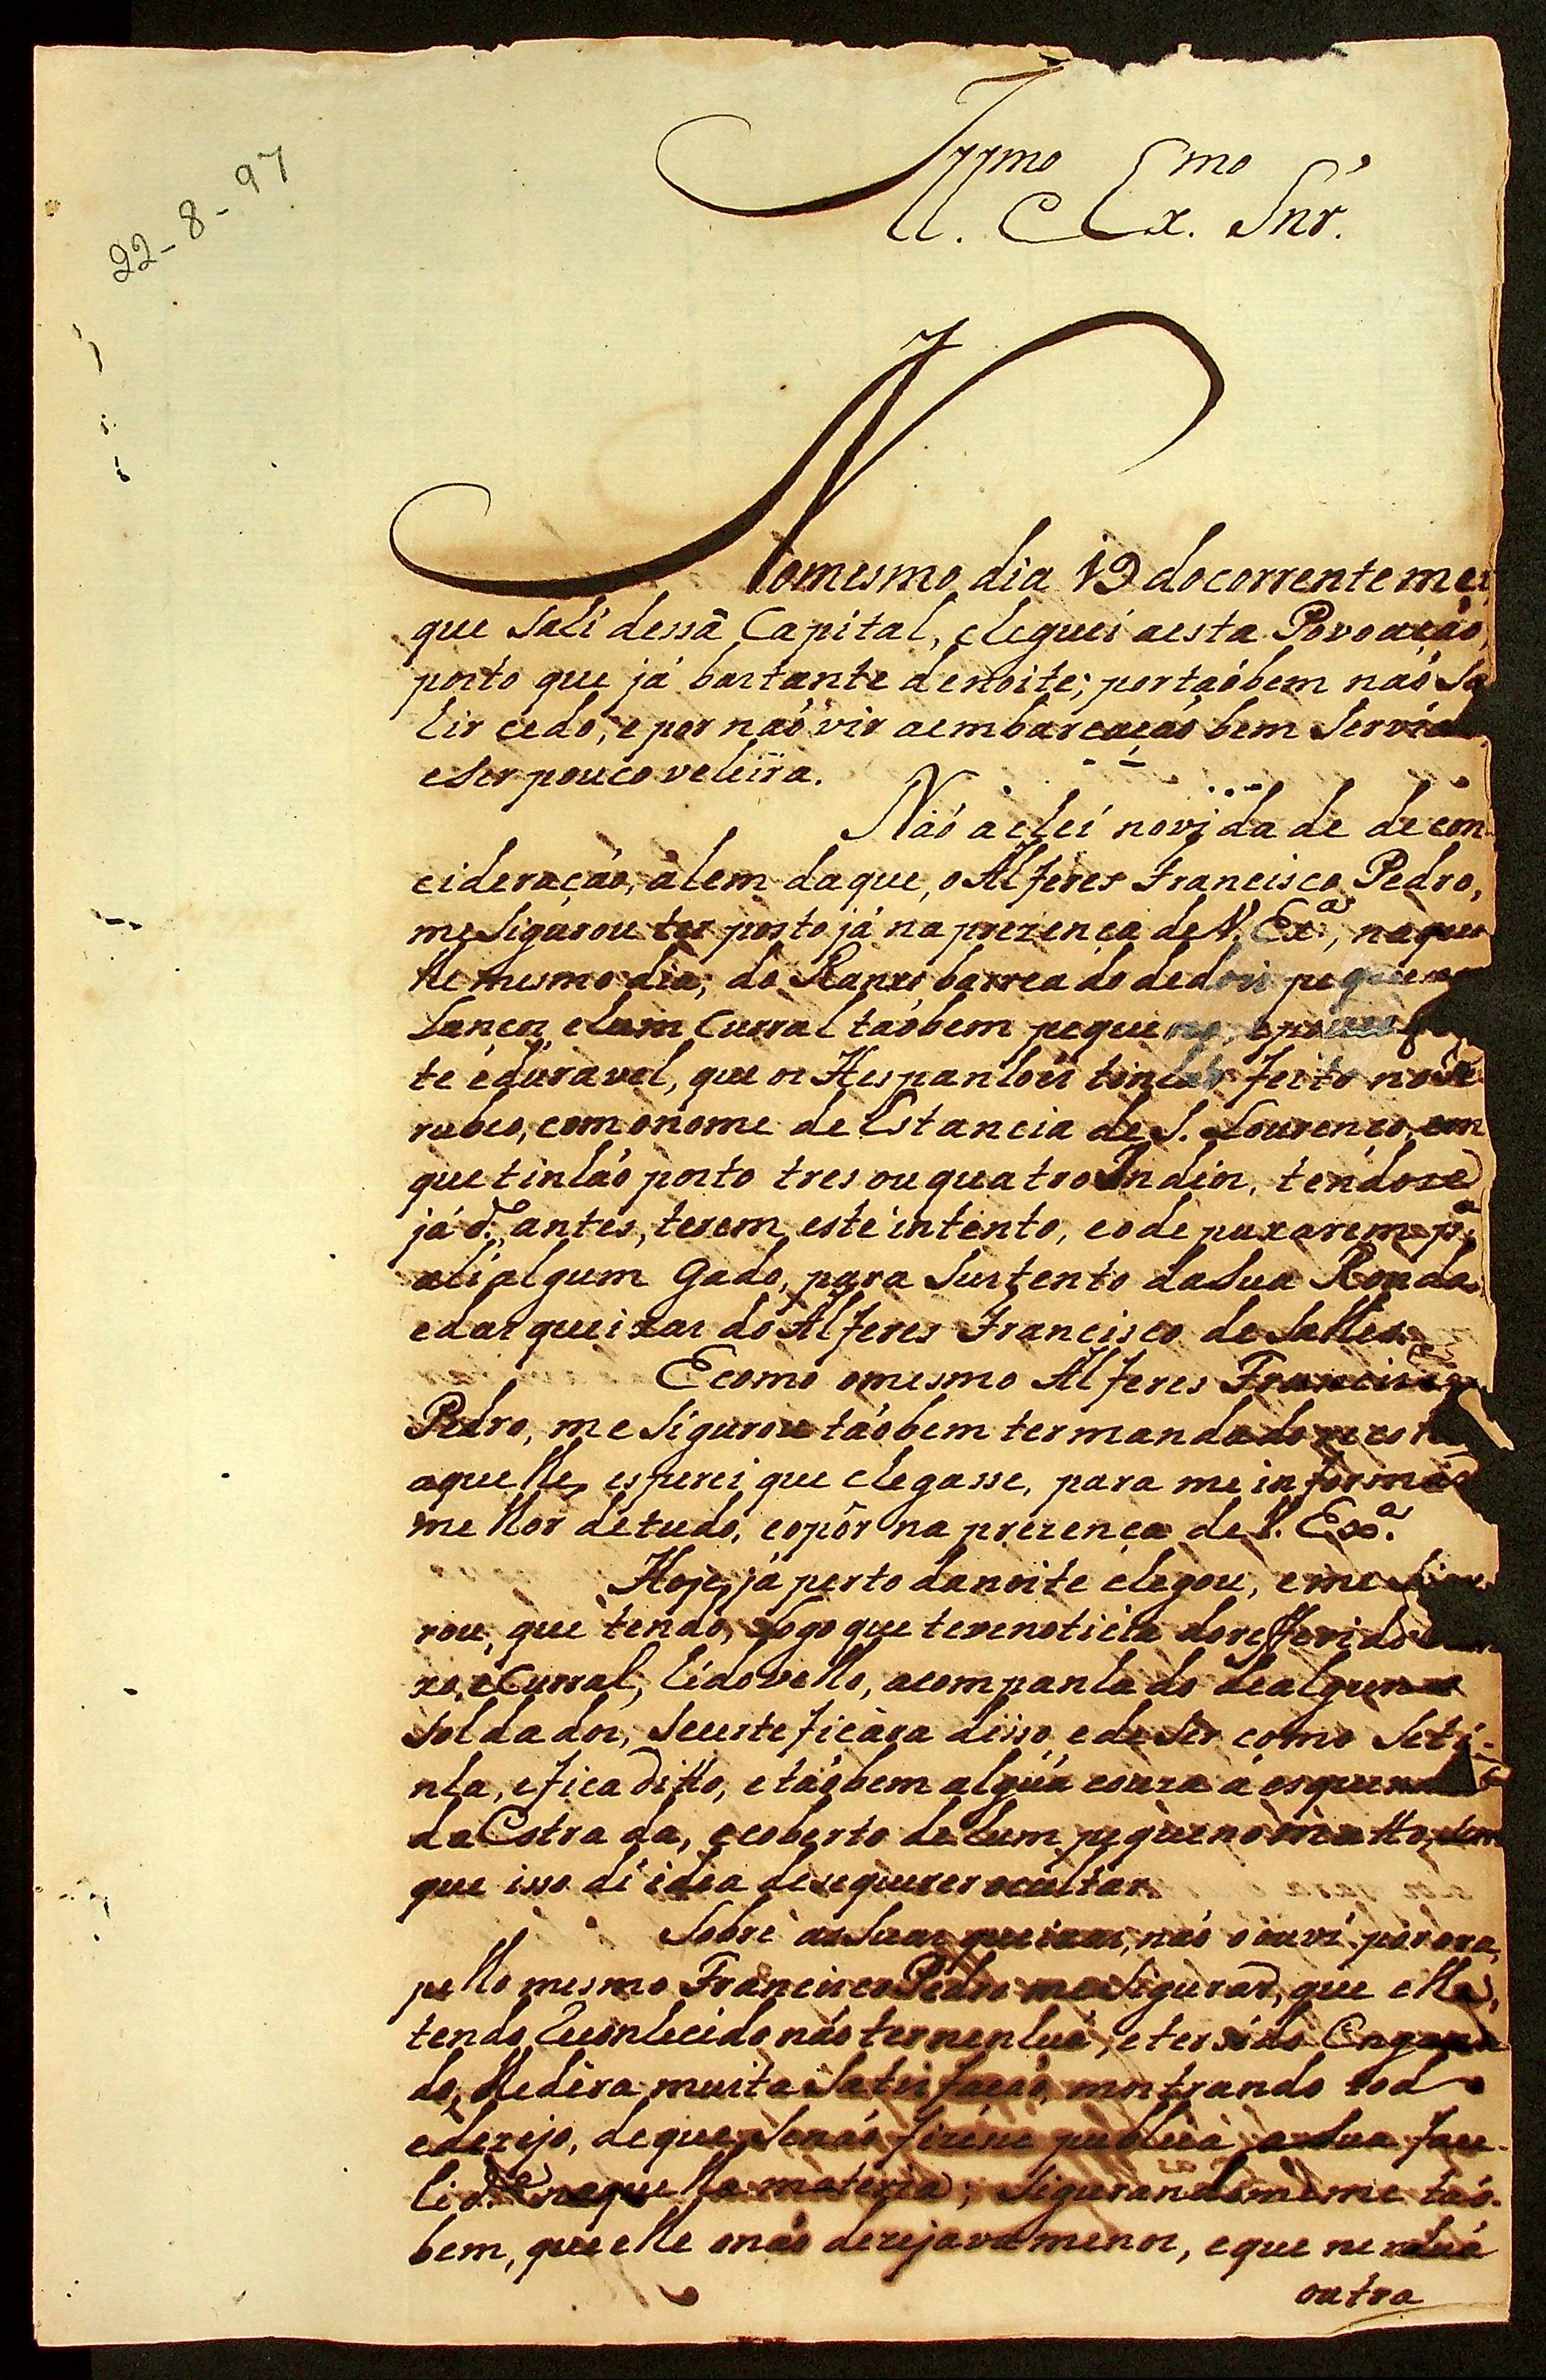 22-8-97
Illmo Exmo
e Snr.
Nomesmo dia 19 docorrente mez
que Sahi dessa Capital, cheguei aesta Povoação,
posto que já bastante denoite; portaõbem naõ Sa
hir cedo, e por naõ vir aembarcaçaõ bem Servida
eSer pouco veleira.
Naõ achei novidade de con-
cideraçaõ, álem daque, o Alferes Francisco Pedro,
meSigurou ter posto já na prezença de V. Exª, naque
lle mesmo dia; do Ranxo barreado dedois pequenos
Lanços, ehum Curral taõbem pequeno, e pouco
te édûravel, que os Hespanhois tinhaõ feito no Je
rubco, comonome de Estancia de S. Lourenço, em
que tinhaõ posto tres ou quatro Indios, tendose
já d. antes, terem este intento, eode puxarem pª
ali algum Gado, para Sustento daSua Ronda,
edas queixas do Alferes Francisco de Salles.
Ecomo omesmo Alferes Francisco
Pedro, meSigurou taõbem ter mandado
aquelle, esperei que chegasse, para me informar
melhor detudo, eopôr na prezença de V. Exª.
Hoje já perto danoite chegou, e meSigu
rou, que tendo, logo que teve noticia do refferido Ran
xo, e Curral, hido vello, acompanhado dealguns
Soldados, Secerteficàra disso, e de Ser como Seti-
nha, efica ditto, etaõbem algũa couza á esquerda
da Estrada, ecoberto dehum pequeno matto, sem
que isso dê idea desequerer ocultar.
Sobre asSuas queixas, naõ o ouvi por ora,
pello mesmo Francisco Pedro meSigurar, que elle,
tendo Reconhecido naõ ter nenhuã, e ter sido Engana
do, lhedera muita Satisfaçaõ, mostrando todo
edezejo, deque Senaõ fizéce publica aSua fac-
lidᵉ naquella materia; Sigurandomeme taõ-
bem, que elle onaõ dezejava menos, eque nenhuã
outra